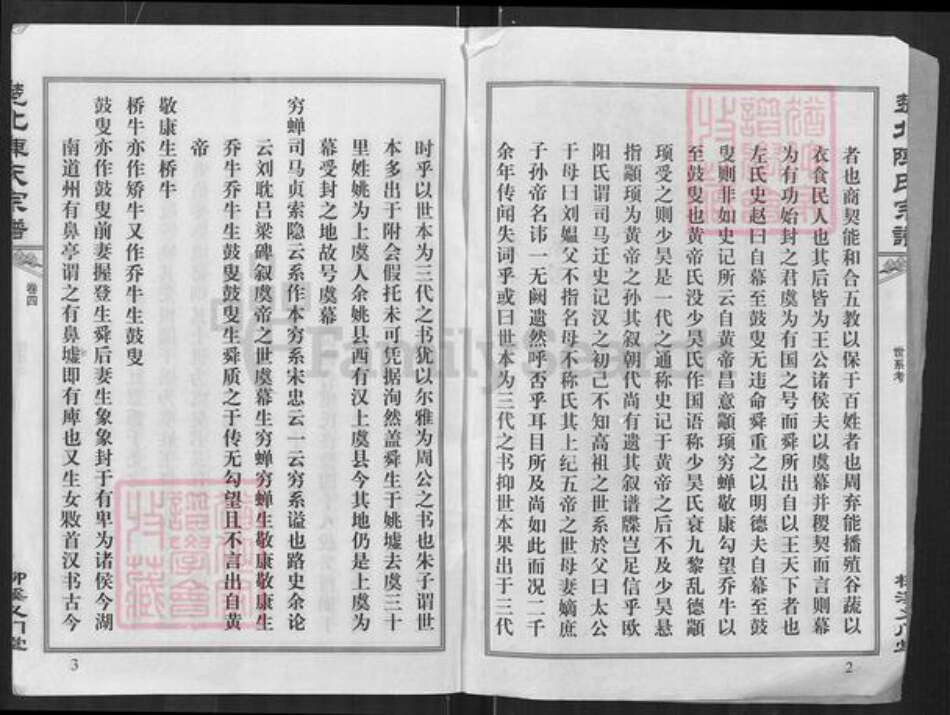 楚北陈氏宗谱
世系考
者也商契能和合五教以保于百姓者也周弃能播殖谷蔬以
衣食民人也其后皆为王公诸侯夫以虞幕并稷契而言则幕
为有功始封之君虞为有国之号而舜所出自以王天下者也
左氏史赵曰自幕至鼓叟无违命舜重之以明德夫自幕至鼓
叟则非如史记所云自黄帝昌意颛顼穷蝉敬康勾望乔牛以
至鼓叟也黄帝氏没少昊氏作国语称少昊氏衰九黎乱德颛
顼受之则少昊是一代之通称史记于黄帝之后不及少昊悬
指颛顼为黄帝之孙其叙朝代尚有遗其叙谱牒岂足信乎欧
阳氏谓司马迁史记汉之初己不知高祖之世系於父曰太公
于母曰刘媪父不指名母不称氏其上纪五帝之世母妻嫡庶
子孙帝名讳一无阙遗然呼否乎耳目所及尚如此而况二千
余年传闻失词乎或曰世本为三代之书抑世本果出于三代
2
时乎以世本为三代之书犹以尔雅为周公之书也朱子谓世
本多出于附会假托未可凭据洵然盖舜生于姚墟去虞三十
里姓姚为上虞人余姚县西有汉上虞县今其地仍是上虞为
幕受封之地故号虞幕
穷蝉司马贞索隐云系作本穷系宋忠云一云穷系谥也路史余论
云刘耽吕梁碑叙虞帝之世虞幕生穷蝉穷蝉生敬康敬康生
乔牛乔牛生鼓叟鼓叟生舜质之于传无勾望且不言出自黄
帝
敬康生桥牛
桥牛亦作矫牛又作乔牛生鼓叟
鼓叟亦作鼓叟前妻握登生舜后妻生象象封于有卑为诸侯今湖
南道州有鼻亭谓之有鼻墟即有庳也又生女敤首汉书古今
楚北陈氏宗谱
卷四
柳溪义门堂
3